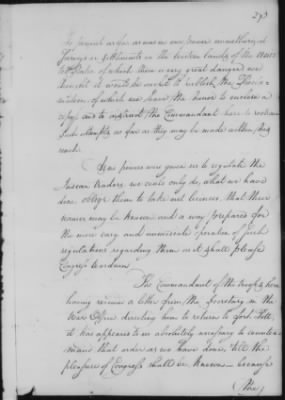 293
To prevent as far as was in our power unauthorised
Surveys or settlements in the western lands of the United
States of which there is very great danger we
thought it would be useful to publish the Proclamation
of which we have the honor to enclose a
copy and to instruct the Commandant here to restrain
such attempts as far as they may be made within his
reach.
As no powers were given us to regulate the
Indian traders we could only do, what we have
done oblige them to take out licences, that their
names may be known and a way prepared for
the more easy and immediate operation of such
regulations regarding them as it shall please
Congress to ordain
The Commandant of the troops here
having received a letter from the Secretary in the
War Office directing him to return to fort Pitt,
it has appeared to us absolutely necessary to countermand
that order as we have done, till the
pleasure of Congress shall be known — because